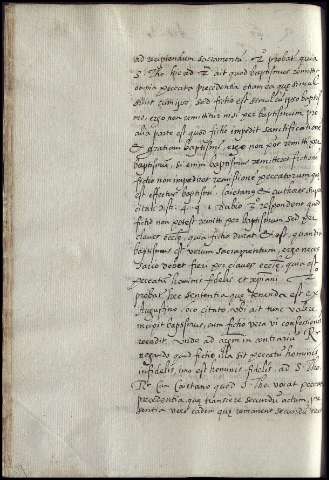 ad recipiendum sacramentū. Et probat quia
S. Tho. hic ad 2 ait quod baptismus remittit
omnia peccata precedentia etiam ea que simul
sunt cum ipso, sed fictio est simul cum ipso baptis
mo, ergo non remittitur nisi per baptismum, pre
alia parte est quod fictio impedit sanctificationem
& gratiam baptismi, ergo non por remitti per
baptismū, si enim baptismus remitteret fictionē
fictio non impediret remissione peccatorum que
est effectus baptismi. Caietanus & authores supra
citati dist. 4. q. 1 dubio respondent quod
fictio non potest remitti per baptismum sed per
claves ecclę, quia fictio durat & est, quando
baptismus est verum sacramentum, ergo neces
sario debet fieri per claves ecclę, quia est
peccatū hominis fidelis et xpiani. Et
probat hec sententia que tenenda est ex
Augustino loco citato, ubi ait tunc valere
incipit baptismus, cum fictio vera confessione
recedit. Unde ad argm in contrariū. Rr
negando quod fictio illa sit peccatū hominis
infidelis, imo est hominis fidelis. ad S. Tho.
Rr. cum Caietano quod S. Tho. vocat peccata
precedentia que transiere secundū actum, pre
sentia vero eadem que remanent secundū rea